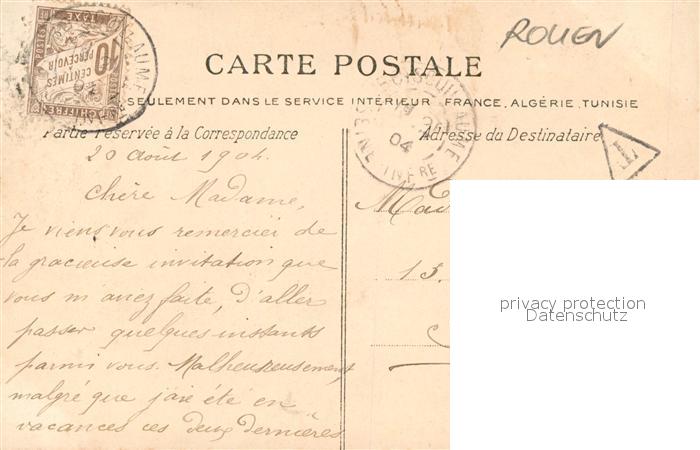 ROUEN
CARTE POSTALE
SEULEMENT DANS LE SERVICE INTÉRIEUR FRANCE, ALGÉRIE, TUNISIE
Partie réservée à la Correspondance
Adresse du Destinataire
POSTES
10
CENTIMES
A PERCEVOIR
TAXE
CHIFFRE
AUME
04
SEINE INFRE
T
20 Août 1904.
Chère Madame,
Je viens vous remercier de
la gracieuse invitation que
vous m'avez faite, d'aller
passer quelques instants
parmi vous. Malheureusement,
malgré que j'aie été en
vacances ces deux dernières
13.
privacy protection
Datenschutz